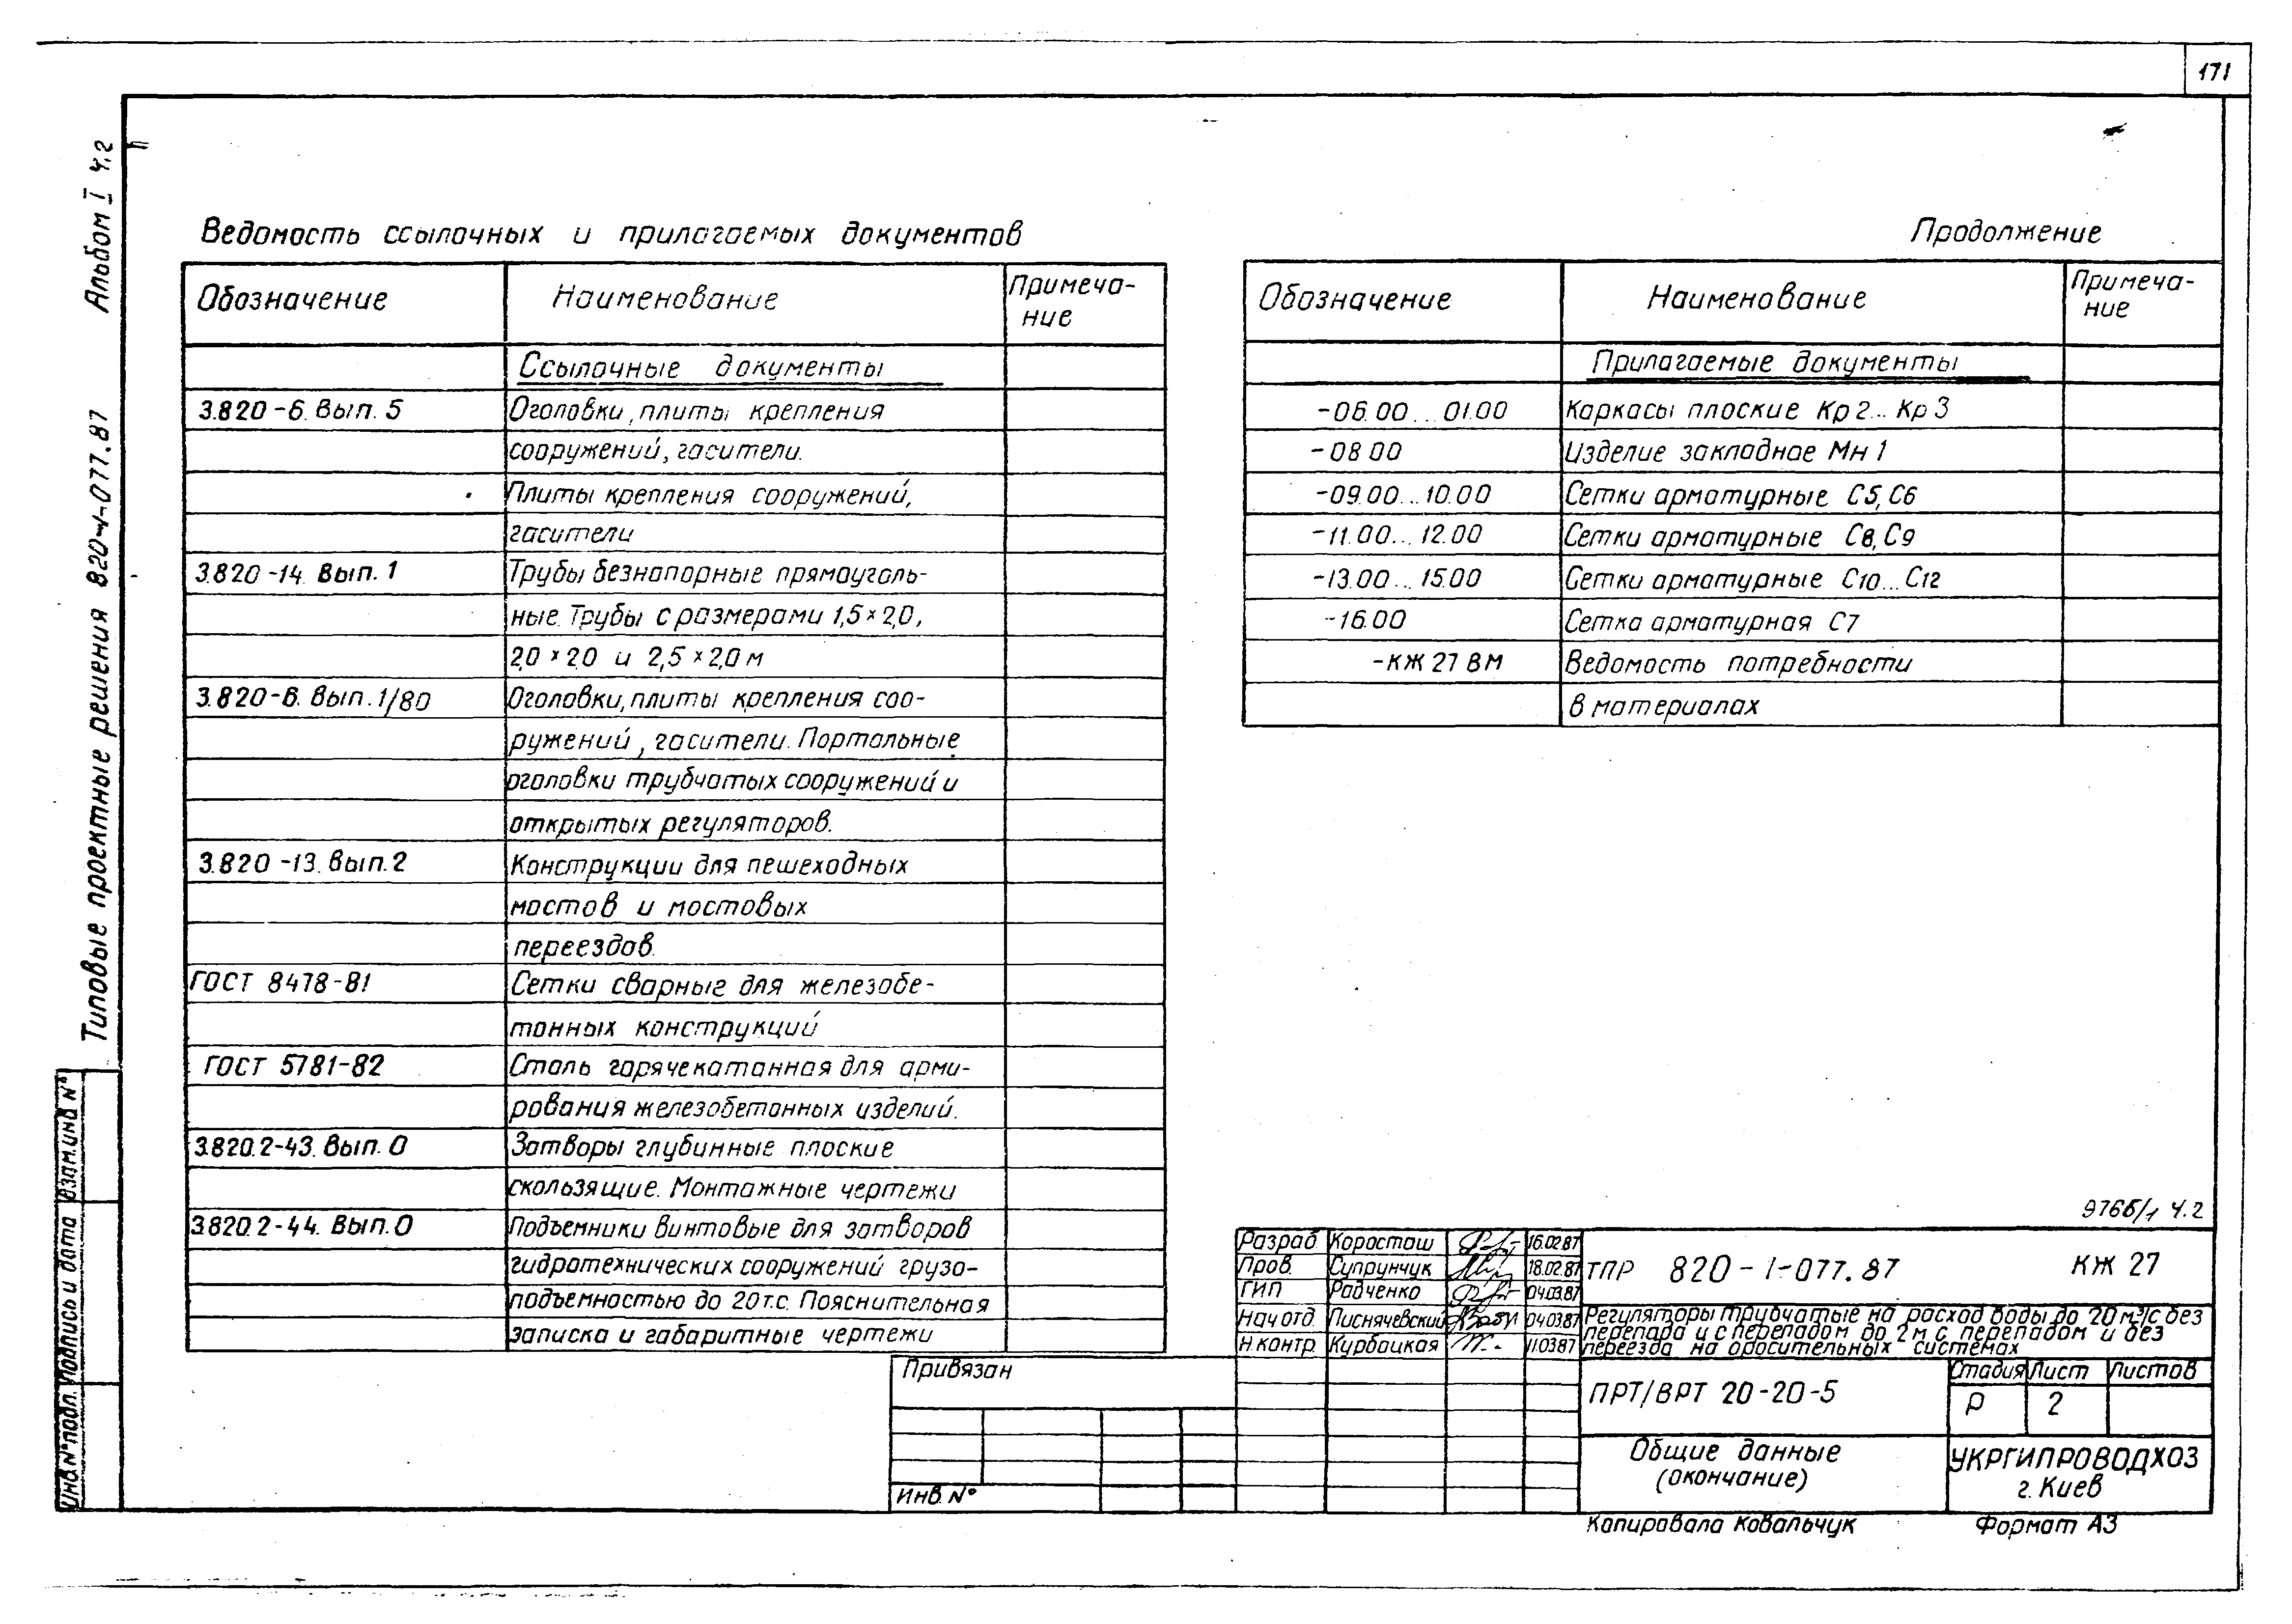 171
Альбом I ч.2
Типовые проектные решения 820-1-077.87
Инв.N°подл. Подпись и дата Взам.инв N°
Ведомость ссылочных и прилагаемых документов
Обозначение Наименование Примеча-
ние
Ссылочные документы
3.820-6. Вып. 5 Оголовки, плиты крепления
сооружений, гасители.
Плиты крепления сооружений,
гасители
3.820-14. Вып. 1 Трубы безнапорные прямоуголь-
ные. Трубы с размерами 1,5×2,0,
2,0×2,0 и 2,5×2,0м
3.820-6. Вып. 1/80 Оголовки, плиты крепления соо-
ружений, гасители. Портальные
оголовки трубчатых сооружений и
открытых регуляторов.
3.820-13. Вып. 2 Конструкции для пешеходных
мостов и мостовых
переездов.
ГОСТ 8478-81 Сетки сварные для железобе-
тонных конструкций
ГОСТ 5781-82 Сталь горячекатанная для арми-
рования железобетонных изделий.
3.820.2-43. Вып. 0 Затворы глубинные плоские
скользящие. Монтажные чертежи
3.820.2-44. Вып. 0 Подъемники винтовые для затворов
гидротехнических сооружений грузо-
подъемностью до 20т.с. Пояснительная
записка и габаритные чертежи
Продолжение
Обозначение Наименование Примеча-
ние
Прилагаемые документы
-06.00...01.00 Каркасы плоские Кр2...Кр3
-08 00 Изделие закладное Мн 1
-09.00...10.00 Сетки арматурные С5, С6
-11.00...12.00 Сетки арматурные С8, С9
-13.00...15.00 Сетки арматурные С10...С12
-16.00 Сетка арматурная С7
-КЖ 27 ВМ Ведомость потребности
в материалах
9766/1 ч.2
Разраб Коросташ 16.02.87
Пров. Супрунчук 18.02.87
ГИП Радченко 04.03.87
Нач отд. Писнячевский 04.03.87
Н.контр. Курбацкая 11.03.87
ТПР 820-1-077.87 КЖ 27
Регуляторы трубчатые на расход воды до 20 м³/с без
перепада и с перепадом до 2 м с перепадом и без
переезда на оросительных системах
ПРТ/ВРТ 20-20-5
Стадия Лист Листов
Р 2
Общие данные
(окончание)
УКРГИПРОВОДХОЗ
г. Киев
Привязан
Инв. N°
Копировала Ковальчук Формат А3